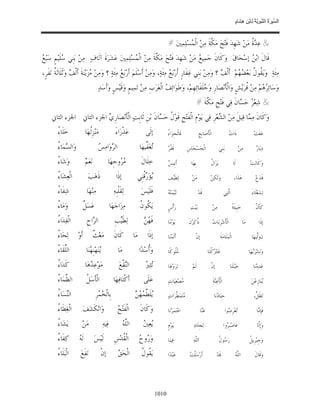 السيرة النبوية لابن هشام
& عدة من شهد فتح مكة من المسلمين #
قال ابن إسحاق وكان جميع من شهد فتح مكة من المسلمين عشرة آلاف من بني سليم سبع
مئة ويقول بعضهم ألف ؟ ومن بني غفار أربع مئة، ومن أسلم أربع مئة ؟ ومن مزينة ألف وثلاثة نفر،
وسائرهم من قريش والأنصار وحلفائهم، وطوائف العرب من تميم وقيس وأسد
& شعر حسان في فتح مكة #
وكان مما قيل من الشعر في يوم الفتح قول حسان بن ثابت الأنصاري الجزء الثاني الجزء الثاني
عفت ذات الأصابع فالجواء إلى عذراء منزلها خلاء
ديار من بني الحسحاس قفر تعفيها الروامس والسماء
وكانت لا يزال بها أنيس خلال مروجها نعم وشاء
فدع هذا، ولكن من لطيف يؤرقني إذا ذهب العشاء
لشعثاء التي قد تيمته فليس لقلبه منها شفاء
كأن خبيئة من بيت رأس يكون مزاجها عسل وماء
إذا ما الأشربات ذكرن يوما فهن لطيب الراح الفداء
نوليها الملامة إن ألمنا إذا ما كان مغث أو لحاء
ونشربها فتتركنا ملوكا وأسدا ما ينهنهنا اللقاء
عدمنا خيلنا إن لم تروها تثير النقع موعدها كداء
ينازعن الأعنة مصغيات على أكتافها الأسل الظماء
تظل جيادنا متمطرات يلطمهن بالخمر النساء
فإما تعرضوا عنا اعتمرنا وكان الفتح وانكشف الغطاء
وإلا فاصبروا لجلاد يوم يعين الله فيه من يشاء
وجبريل رسول الله فينا وروح القدس ليس له كفاء
وقال الله قد أرسلت عبدا يقول الحق إن نفع البلاء
1010